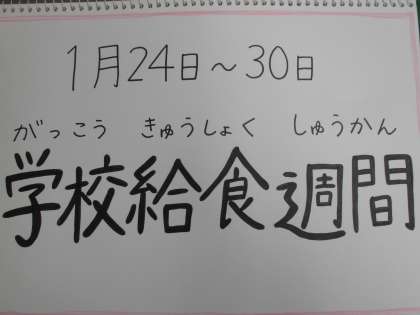 1月24日～30日
がっこう きゅうしょく しゅうかん
学校給食週間